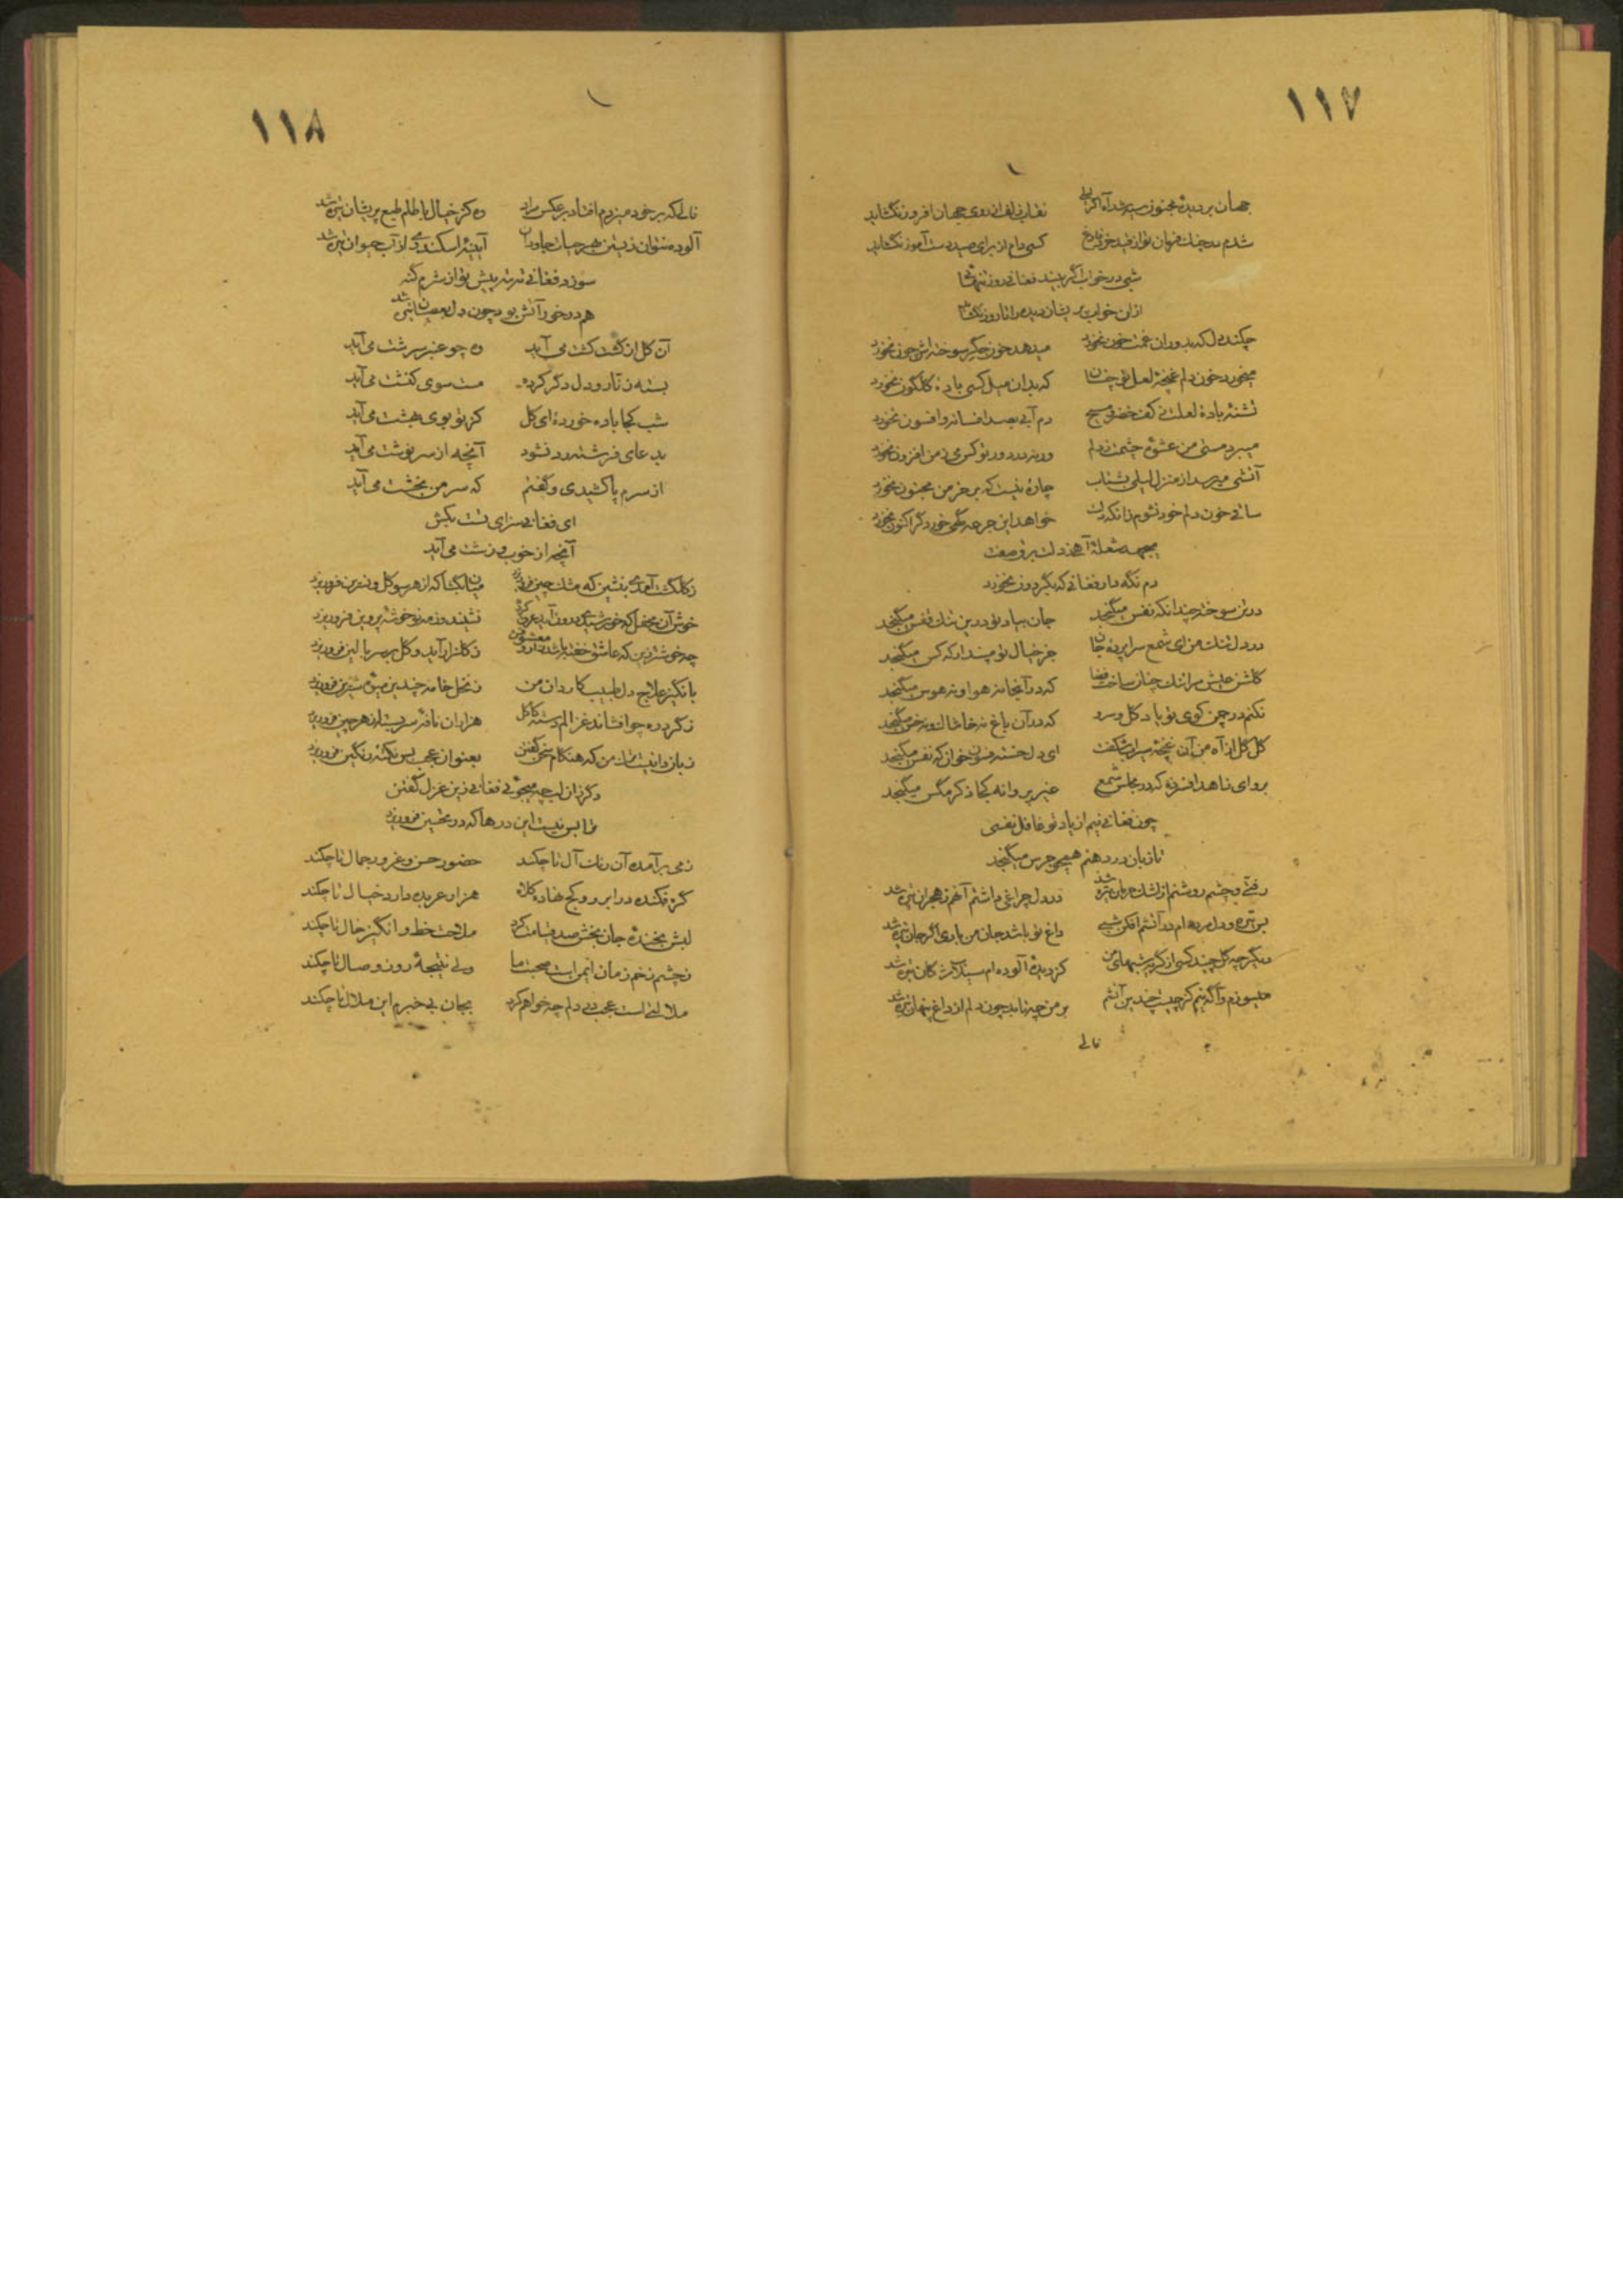 ۱۱۷
جهان بر دیدهٔ مجنون سیه شد آه اگر لیلی نقاب زلف از روی جهان افروز نگشاید
کسی دام از برای صید دست آموز نگشاید
شبی در خواب اگر بیند فغانی روز تنهائی
ازان خواب پریشان دیده را تا روز نگشاید
چکند دل که بدوران غمت خون نخورد میدهد خون جگر سوخته اش چون نخورد
میخورد خون دلم غنچهٔ لعل تو چنان که بدان میل کسی بادهٔ گلگون نخورد
تشنهٔ بادهٔ لعلت ز کف خضر و مسیح دم آبی بصد افسانه و افسون نخورد
میبرد مستی من عشوهٔ چشمت ز دلم ورنه در دور تو کس می ز من افزون نخورد
آتشی میرسد از منزل لیلی بشتاب چاره نیست که بر خرمن مجنون نخورد
ساقی خون دلم خود نشوم زانکه دلت خواهد این جرعه گهی خورد گر اکنون نخورد
میجهد شعلهٔ آهی ز دلت برق صفت
دم نگه دار فغانی که بگردون نخورد
در تن سوخته چندانکه نفس میگنجد جان بیاد تو درین تنگ قفس میگنجد
در دل تنگ من ای شمع سراپردهٔ جان جز خیال تو مپندار که کس میگنجد
گلشن عیش مرا تنگ چنان ساخت قضا که در آنجا نه هوا و نه هوس میگنجد
نکنم در چمن کوی تو یاد گل و سرو که در آن باغ نه خاشاک و نه خس میگنجد
گل گل از آه من آن غنچهٔ سیراب شکفت ای دل خسته فسون خوان که نفس میگنجد
برو ای زاهد افسرده که در مجلس شمع غیر پروانه کجا ذکر مگس میگنجد
چون فغانی نیم از یاد تو غافل نفسی
تا زبان در دهنم همچو جرس میگنجد
رفتی و چشم روشنم از اشک حرمان تیره شد در دل چراغی داشتم آنهم ز هجران تیره شد
بس تیره و دل مرده ام در آتشم افکن شبی داغ تو باشد جان من باری اگر جان تیره شد
دیگر چه گل چیند کسی از گریهٔ شبهای من کز دیدهٔ آلوده ام
میسوزم و آگه نیم کز چیست چندین آتشم بر من چه تابد چون دلم از داغ پنهان تیره شد
فالی
۱۱۸
فالی که بر خود میزدم افتاد بر عکس مراد وه کز خیال باطلم طبع پریشان تیره شد
آلوده نتوان زیستن بهر حیات جاودان آیینهٔ اسکندری از آب حیوان تیره شد
سوزد فغانی نه به پیش تو از شرم گنه
هم در خور آتش بود چون دل بعصیان تیره شد
آن گل از گشت کشت می آید وه چو عنبر سرشت می آید
بسته زنار و دل دگر کرده مست سوی کنشت می آید
شب کجا باده خوردهٔ ای گل کز تو بوی بهشت می آید
بدعای فرشته رد نشود آنچه از سرنوشت می آید
از سرم پا کشیدی و گفتم که سر من بخشت می آید
ای فغانی سزای تست بکش
آنچه از خوب و زشت می آید
میان بگشا که از هر سو گل و نسرین فرو ریزد
خوش آن محفل که خورشیدی نشیند وز مه نو خوشهٔ پروین فرو ریزد
چه خوشتر زین که عاشق خفته باشد ز گلزار آید و گل بر سر بالین فرو ریزد
بانگیز علاج دل طبیب کاردان من ز نخل خامه چندین میوهٔ شیرین فرو ریزد
ز گرد ره چو افشاند غزالم دستهٔ کاکل هزاران نافهٔ سربسته از هر چین فرو ریزد
زبان دانیست من که هنگام سخن گفتن بعنوان عجب بس نکتهٔ رنگین فرو ریزد
دگر زان لب چه میجوئی فغانی زین غزل گفتن
ترا بس نیست این درها که در تحسین فرو ریزد
ز می برآمده آن رنگ آل تا چکند حضور حسن و غرور جمال تا چکند
گره فکنده در ابرو و کج نهاده کلاه هزار عربده دارد خیال تا چکند
لبش بخندهٔ جان بخش صد قیامت کرد ملاحت خط و انگیز خال تا چکند
ز چشم زخم زمان ایمن است صحبت ما ولی نتیجهٔ روز وصال تا چکند
ملالتی است عجب در دلم چه خواهم کرد بجان بی خبرم این ملال تا چکند